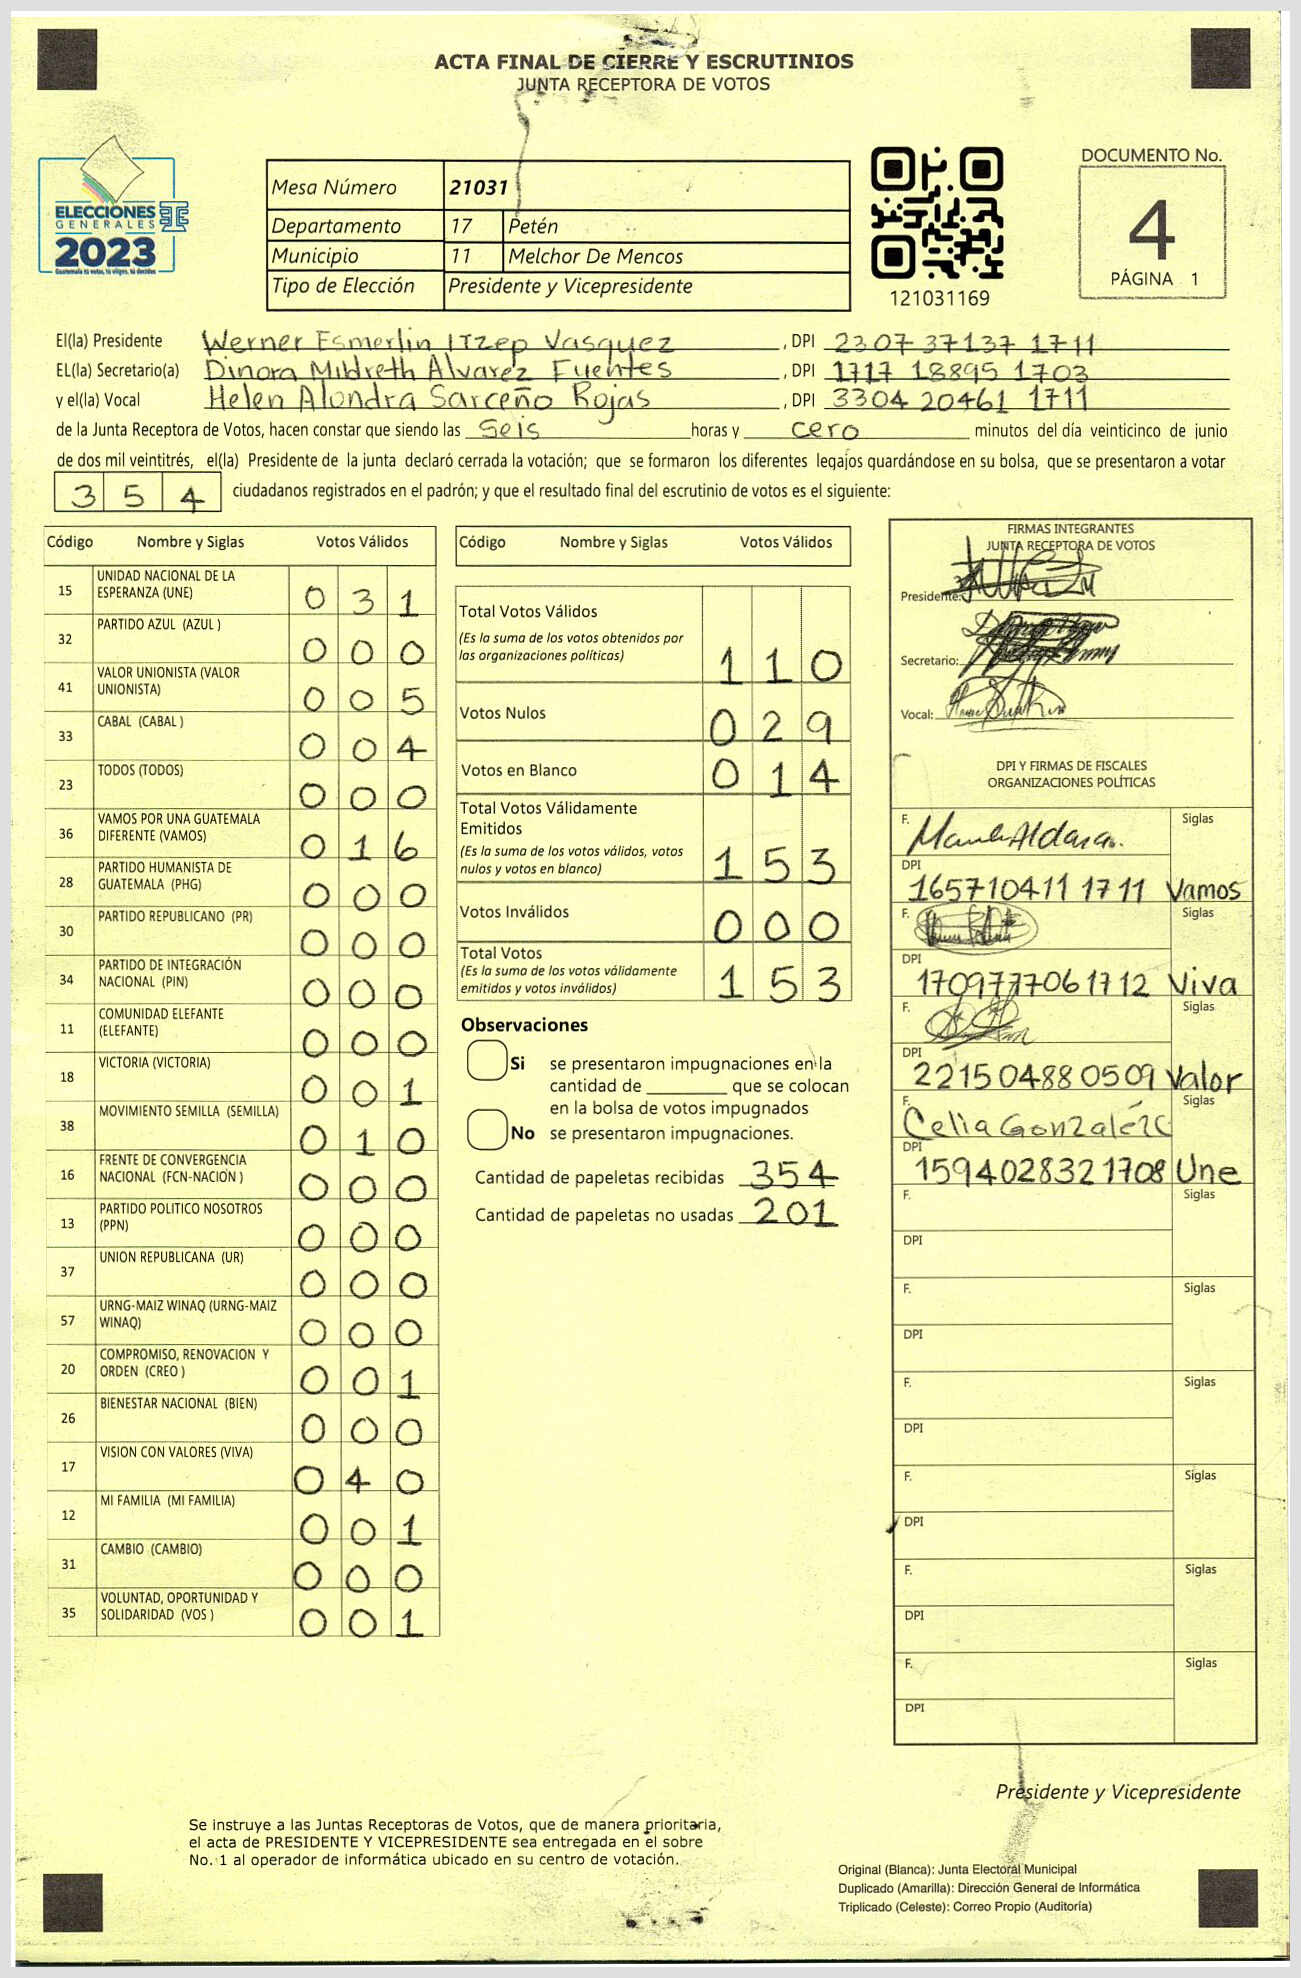 ACTA FINAL DE CIERRE Y ESCRUTINIOS
JUNTA RECEPTORA DE VOTOS
ELECCIONES
GENERALES
2023
Guatemala tú votas, tú eliges, tú decides
Mesa Número 21031
Departamento 17 Petén
Municipio 11 Melchor De Mencos
Tipo de Elección Presidente y Vicepresidente
121031169
DOCUMENTO No.
4
PÁGINA 1
El(la) Presidente Werner Esmerlin ITzep Vasquez , DPI 2307 37137 1711
EL(la) Secretario(a) Dinora Mildreth Alvarez Fuentes , DPI 1717 18895 1703
y el(la) Vocal Helen Alondra Sarceño Rojas , DPI 3304 20461 1711
de la Junta Receptora de Votos, hacen constar que siendo las Seis horas y cero minutos del día veinticinco de junio
de dos mil veintitrés, el(la) Presidente de la junta declaró cerrada la votación; que se formaron los diferentes legajos guardándose en su bolsa, que se presentaron a votar
354 ciudadanos registrados en el padrón; y que el resultado final del escrutinio de votos es el siguiente:
Código Nombre y Siglas Votos Válidos
15 UNIDAD NACIONAL DE LA
ESPERANZA (UNE) 031
32 PARTIDO AZUL (AZUL ) 000
41 VALOR UNIONISTA (VALOR
UNIONISTA) 005
33 CABAL (CABAL ) 004
23 TODOS (TODOS) 000
36 VAMOS POR UNA GUATEMALA
DIFERENTE (VAMOS) 016
28 PARTIDO HUMANISTA DE
GUATEMALA (PHG) 000
30 PARTIDO REPUBLICANO (PR) 000
34 PARTIDO DE INTEGRACIÓN
NACIONAL (PIN) 000
11 COMUNIDAD ELEFANTE
(ELEFANTE) 000
18 VICTORIA (VICTORIA) 001
38 MOVIMIENTO SEMILLA (SEMILLA) 010
16 FRENTE DE CONVERGENCIA
NACIONAL (FCN-NACION ) 000
13 PARTIDO POLITICO NOSOTROS
(PPN) 000
37 UNION REPUBLICANA (UR) 000
57 URNG-MAIZ WINAQ (URNG-MAIZ
WINAQ) 000
20 COMPROMISO, RENOVACION Y
ORDEN (CREO ) 001
26 BIENESTAR NACIONAL (BIEN) 000
17 VISION CON VALORES (VIVA) 040
12 MI FAMILIA (MI FAMILIA) 001
31 CAMBIO (CAMBIO) 000
35 VOLUNTAD, OPORTUNIDAD Y
SOLIDARIDAD (VOS ) 001
Código Nombre y Siglas Votos Válidos
Total Votos Válidos
(Es la suma de los votos obtenidos por
las organizaciones políticas) 110
Votos Nulos 029
Votos en Blanco 014
Total Votos Válidamente
Emitidos
(Es la suma de los votos válidos, votos
nulos y votos en blanco) 153
Votos Inválidos 000
Total Votos
(Es la suma de los votos válidamente
emitidos y votos inválidos) 153
Observaciones
Si se presentaron impugnaciones en la
cantidad de ________ que se colocan
en la bolsa de votos impugnados
No se presentaron impugnaciones.
Cantidad de papeletas recibidas 354
Cantidad de papeletas no usadas 201
FIRMAS INTEGRANTES
JUNTA RECEPTORA DE VOTOS
Presidente:
Secretario:
Vocal:
DPI Y FIRMAS DE FISCALES
ORGANIZACIONES POLÍTICAS
F. Siglas
DPI
165710411 1711 Vamos
F. Siglas
DPI
1709777061712 Viva
F. Siglas
DPI
2215048800509 Valor
F. Celia Gonzalez Siglas
DPI
1594028321708 Une
F. Siglas
DPI
F. Siglas
DPI
F. Siglas
DPI
F. Siglas
DPI
F. Siglas
DPI
F. Siglas
DPI
Presidente y Vicepresidente
Se instruye a las Juntas Receptoras de Votos, que de manera prioritaria,
el acta de PRESIDENTE Y VICEPRESIDENTE sea entregada en el sobre
No. 1 al operador de informática ubicado en su centro de votación.
Original (Blanca): Junta Electoral Municipal
Duplicado (Amarilla): Dirección General de Informática
Triplicado (Celeste): Correo Propio (Auditoría)